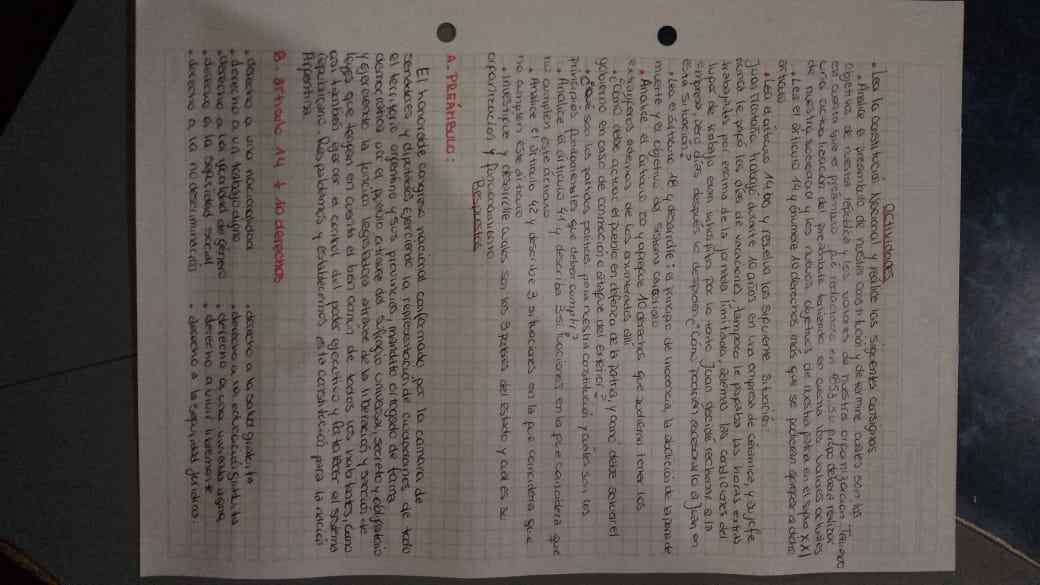 Actividades
• Lea la constitución Nacional y realice las siguientes consignas.
• Analice el preámbulo de nuestra constitución y determine cuales son los
objetivos de nuestra república y los valores de nuestra organización. Teniendo
en cuenta que el preámbulo fue redactado en 1853, se propone deberá realizar
una actualización del preámbulo teniendo en cuenta los valores actuales
de nuestra sociedad y los nuevos objetivos de nuestra patria en el siglo XXI
• Lea el artículo 14 y enumere 10 derechos más que se podrían agregar a dicho
artículo
• Lea el artículo 14 bis y resuelva la siguiente situación:
Juan Montaña trabajó durante 10 años en una empresa de cerámica, y su jefe
nunca le pagó los días de vacaciones, tampoco le pagaba las horas extras
trabajadas por encima de la jornada limitada, además las condiciones del
lugar de trabajo eran insalubres por lo tanto Juan decidió reclamar a la
empresa, pero días después lo despiden ¿Cómo podrían ayudarlo a Juan en
esta situación?
• Lea el artículo 18 y desarrolle: el principio de inocencia, la abolición de la pena de
muerte y el objetivo del sistema carcelario
• Analice el artículo 20 y agregue 10 derechos que pudieran tener los
extranjeros además de los enumerados allí.
• ¿Cómo debe actuar el pueblo en defensa de la patria, y como debe actuar el
gobierno en caso de conmoción o ataque del exterior?
• ¿Qué son los partidos políticos para nuestra constitución y cuales son los
principios fundamentales que deben cumplir?
• Analice el artículo 41 y describa 3 situaciones en la que considera que
no cumplen este artículo
• Analice el artículo 42 y describe 3 situaciones en la que considera que
no cumplen este artículo
• Investigue y desarrolle cuales son los 3 poderes del estado y cual es su
organización y funcionamiento.
Respuestas
A. PREÁMBULO:
El honorable congreso nacional conformado por la cámara de
senadores y diputados ejerciendo la representación de ciudadanos de todo
el territorio argentino y sus provincias mandato otorgado de forma
democrática por el pueblo a través del sufragio universal, secreto y obligatorio
y ejerciendo la función legislativa a través de la liberación y sanción de
leyes que tengan en cuenta el bien común de todos los habitantes, como
así también ejercer a control del poder ejecutivo y fortalecer el sistema
republicano. Respaldamos y establecemos esta constitución para la nación
Argentina
B. artículo 14 + 10 derechos
• derecho a una nacionalidad
• derecho a un trabajo digno
• derecho a la igualdad de género
• derecho a la seguridad social
• derecho a la no discriminación
• derecho a la salud gratuita
• derecho a una educación gratuita
• derecho a una vivienda digna
• derecho a vivir libremente
• derecho a la seguridad jurídica.